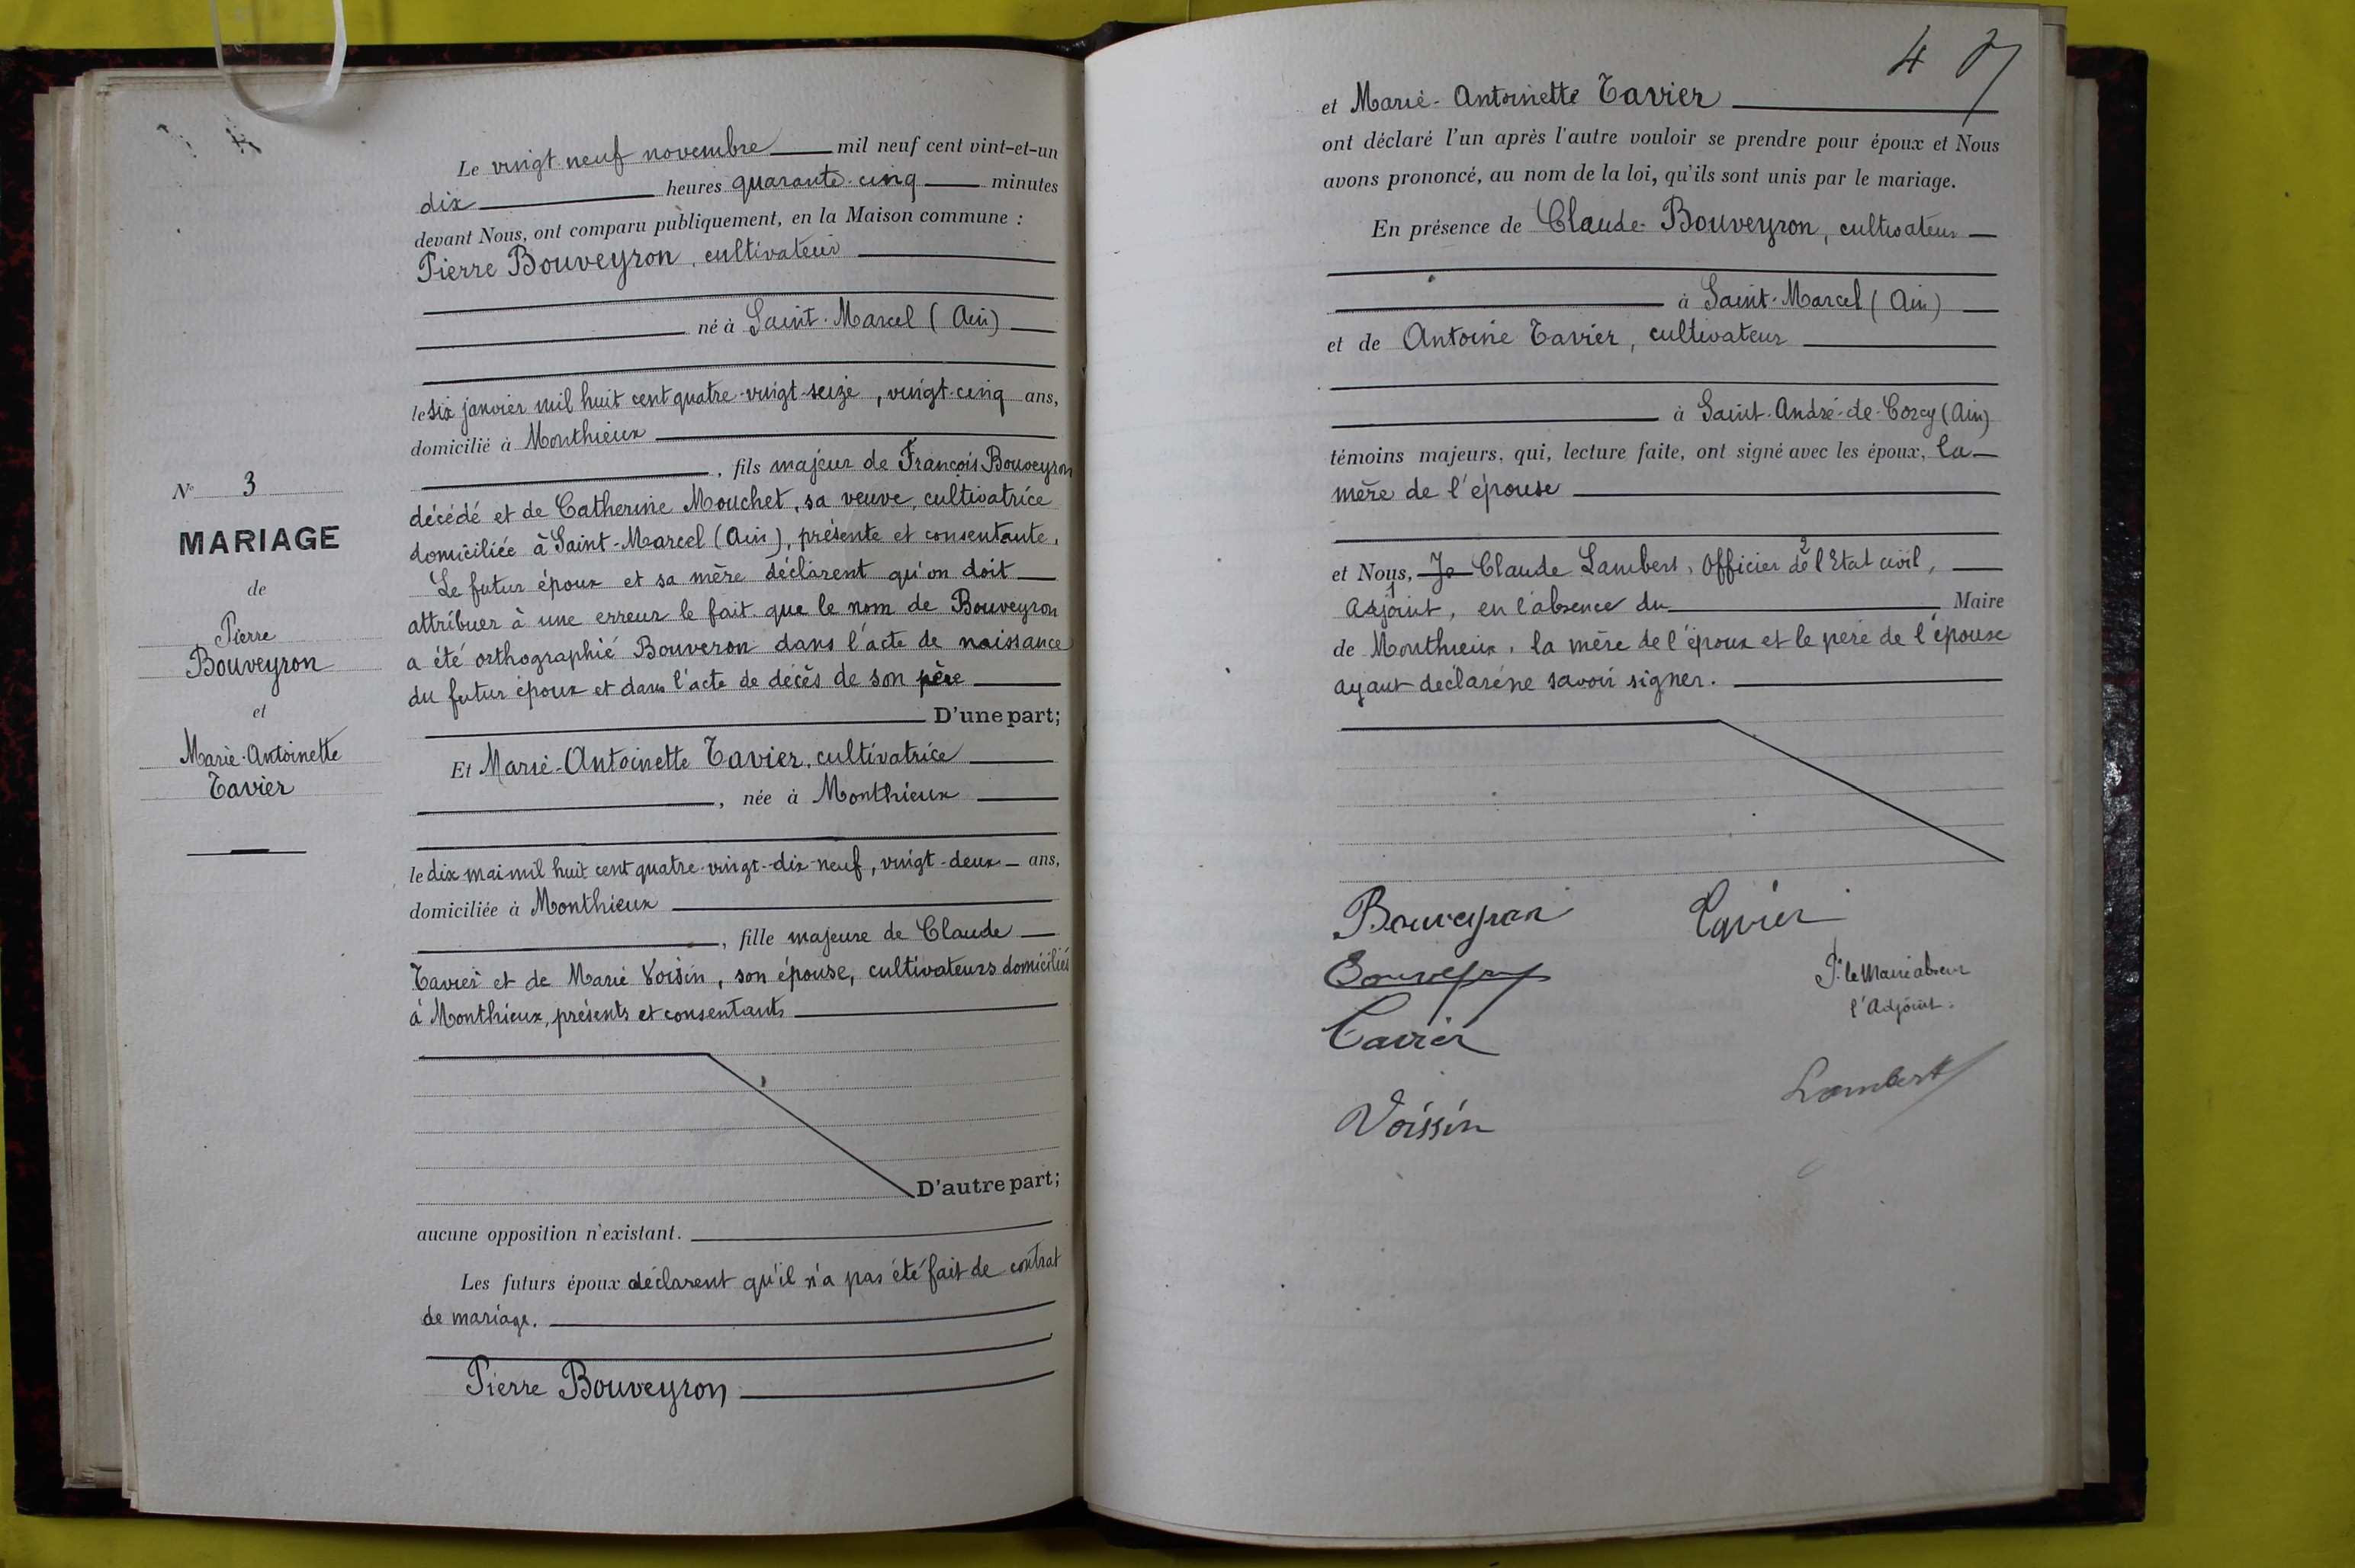 N° 3
MARIAGE
de
Pierre
Bouveyron
et
Marie-Antoinette
Tavier
Le vingt-neuf novembre mil neuf cent vint-et-un
dix heures quarante-cinq minutes
devant Nous, ont comparu publiquement, en la Maison commune :
Pierre Bouveyron, cultivateur
né à Saint-Marcel (Ain)
le six janvier mil huit cent quatre-vingt-seize, vingt-cinq ans,
domicilié à Monthieux
, fils majeur de François Bouveyron
décédé et de Catherine Mouchet, sa veuve, cultivatrice
domiciliée à Saint-Marcel (Ain), présente et consentante.
Le futur époux et sa mère déclarent qu'on doit
attribuer à une erreur le fait que le nom de Bouveyron
a été orthographié Bouveron dans l'acte de naissance
du futur époux et dans l'acte de décès de son père
D'une part;
Et Marie-Antoinette Tavier, cultivatrice
, née à Monthieux
le dix mai mil huit cent quatre-vingt-dix-neuf, vingt-deux ans,
domiciliée à Monthieux
, fille majeure de Claude
Tavier et de Marie Voisin, son épouse, cultivateurs domiciliés
à Monthieux, présents et consentants
D'autre part;
aucune opposition n'existant.
Les futurs époux déclarent qu'il n'a pas été fait de contrat
de mariage.
Pierre Bouveyron
47
et Marie-Antoinette Tavier
ont déclaré l'un après l'autre vouloir se prendre pour époux et Nous
avons prononcé, au nom de la loi, qu'ils sont unis par le mariage.
En présence de Claude Bouveyron, cultivateur
à Saint-Marcel (Ain)
et de Antoine Tavier, cultivateur
à Saint-André-de-Corcy (Ain)
témoins majeurs, qui, lecture faite, ont signé avec les époux, la
mère de l'épouse
et Nous, Je Claude Lambert, Officier de l'Etat civil,
Adjoint, en l'absence du Maire
de Monthieux, la mère de l'époux et le père de l'épouse
ayant déclaré ne savoir signer.
Bouveyron Tavier
Bouveyron
P. le Maire absent
l'Adjoint.
Tavier
Lambert
Voissin